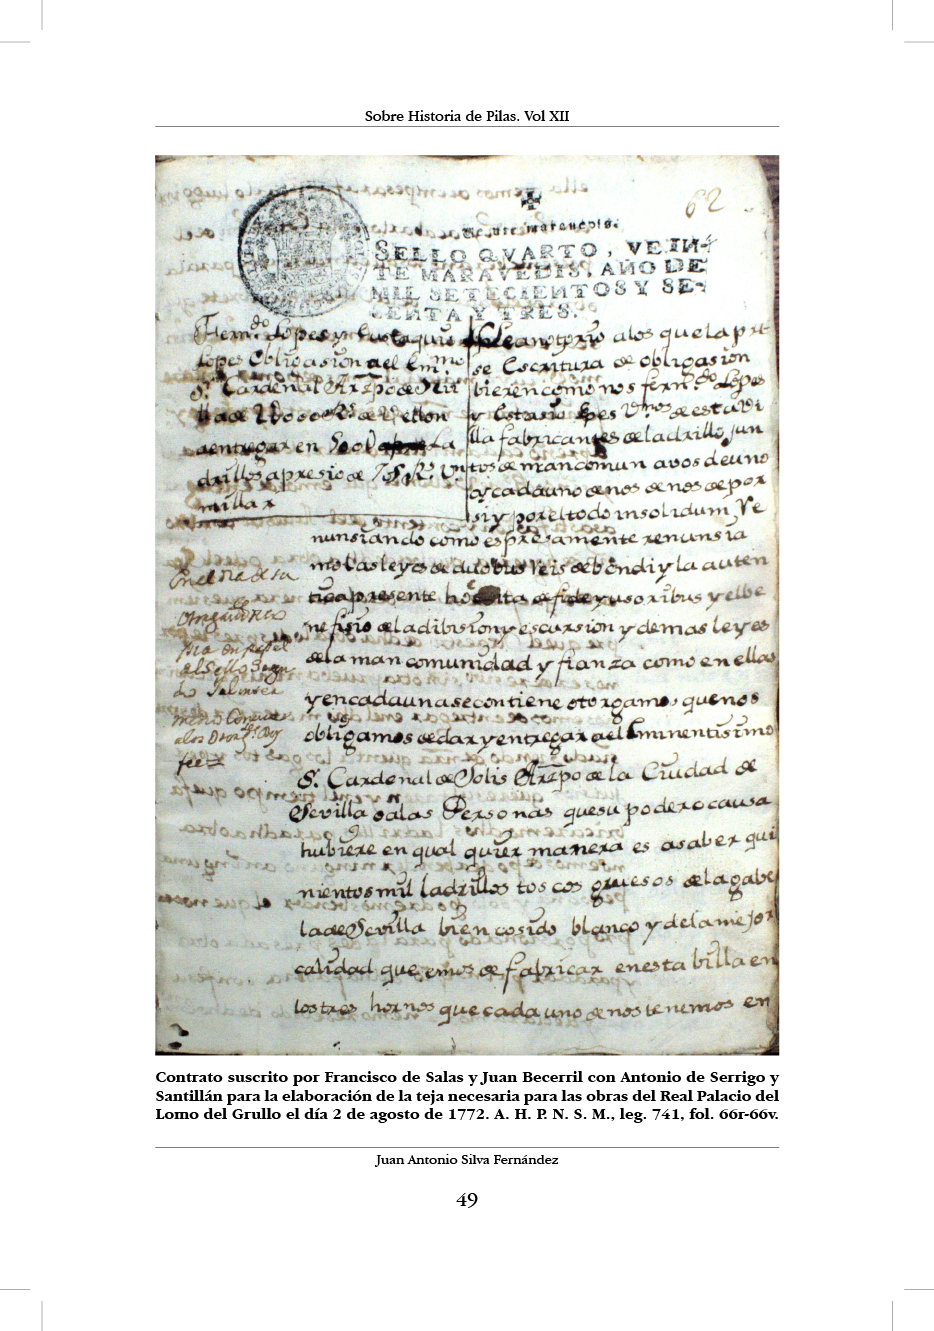 Sobre Historia de Pilas. Vol XII
62
SELLO QVARTO, VEIN-
TE MARAVEDIS, AÑO DE
MIL SETECIENTOS Y SE-
SENTA Y TRES.
Fern.do Lopes y Eustaquio
Lopes Obligasion a el Em.mo
S.r Cardenal Arzpo de Sivi
lla de
a entregar en
drillos a presio de
millar
a los que la pre
se Escritura de obligasion
bieren como nos fern.do Lopes
y Lopes de esta Vi
lla fabricantes de ladrillo, jun
tos de mancomun a vos de uno
y cada uno de nos de nos de por
si y por el todo insolidum, Re
nunsiando como espresamente renunsia
mos las leyes de duobus reis debendi y la auten
tica presente hocita de fideyusoribus y el be
nefisio de la dibision y escursion y demas leyes
de la mancomunidad y fianza como en ellas
y en cada una se contiene otorgamos que nos
obligamos de dar y entregar a el Eminentisimo
S.r Cardenal de Solis Arzpo de la Ciudad de
Sevilla o a las Personas que su poder o causa
hubiere en qual quier manera es a saber qui
nientos mil ladrillos toscos gruesos de la gabe
la de Sevilla bien cosido blanco y de la mejor
calidad que emos de fabricar en esta billa en
los tres hornos que cada uno de nos tenemos en
En el dia de su
pia en papel
al Sello Segun
do
fee
Contrato suscrito por Francisco de Salas y Juan Becerril con Antonio de Serrigo y
Santillán para la elaboración de la teja necesaria para las obras del Real Palacio del
Lomo del Grullo el día 2 de agosto de 1772. A. H. P. N. S. M., leg. 741, fol. 66r-66v.
Juan Antonio Silva Fernández
49